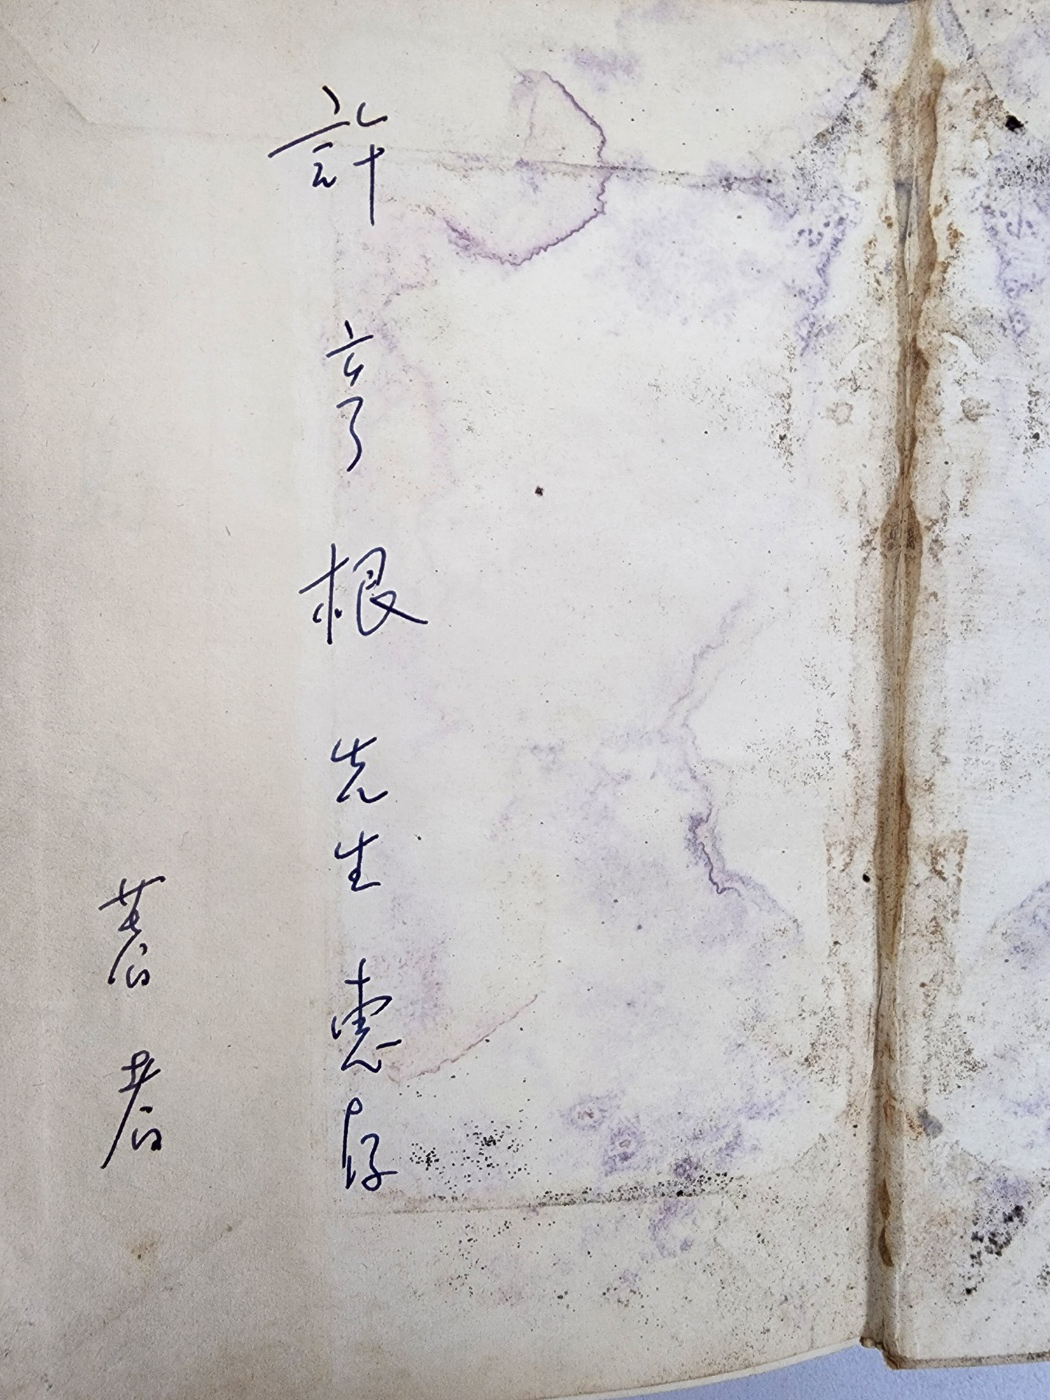 許亨根 先生 惠存
著者